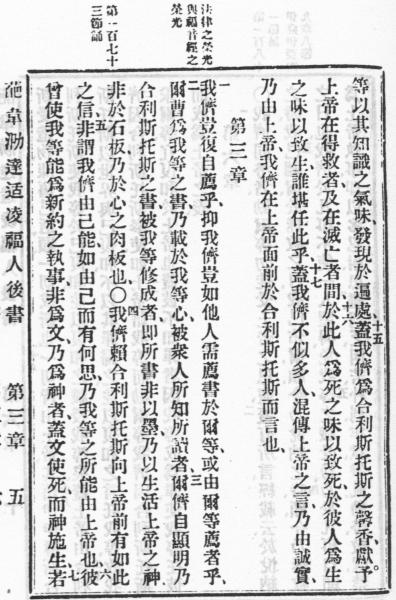 法律之榮光
與福音經之
榮光
第一百七十
三節誦
等以其知識之氣味、發現於遍處、十五蓋我儕爲合利斯托斯之馨香獻予
上帝在得救者、及在滅亡者間、十六於此人爲死之味以致死、於彼人爲生
之味以致生、誰堪任此乎、十七蓋我儕不似多人、混傳上帝之言、乃由誠實、
乃由上帝、我儕在上帝面前於合利斯托斯而言也、
第三章
一我儕豈復自薦乎、抑我儕豈如他人需薦書於爾等、或由爾等薦者乎、
二爾曹爲我等之書、乃載於我等心、被衆人所知所讀者、三爾儕自顯明乃
合利斯托斯之書、被我等修成者、即所書非以墨、乃以生活上帝之神、
非於石板、乃於心之肉板也、〇四我儕賴合利斯托斯向上帝前有如此
之信、五非謂我儕由己能如由己而有何思、乃我等之所能由上帝也、六彼
曾使我等能爲新約之執事、非爲文、乃爲神者、蓋文使死、而神施生、七若
葩韋泐達适凌福人後書 第三章 五